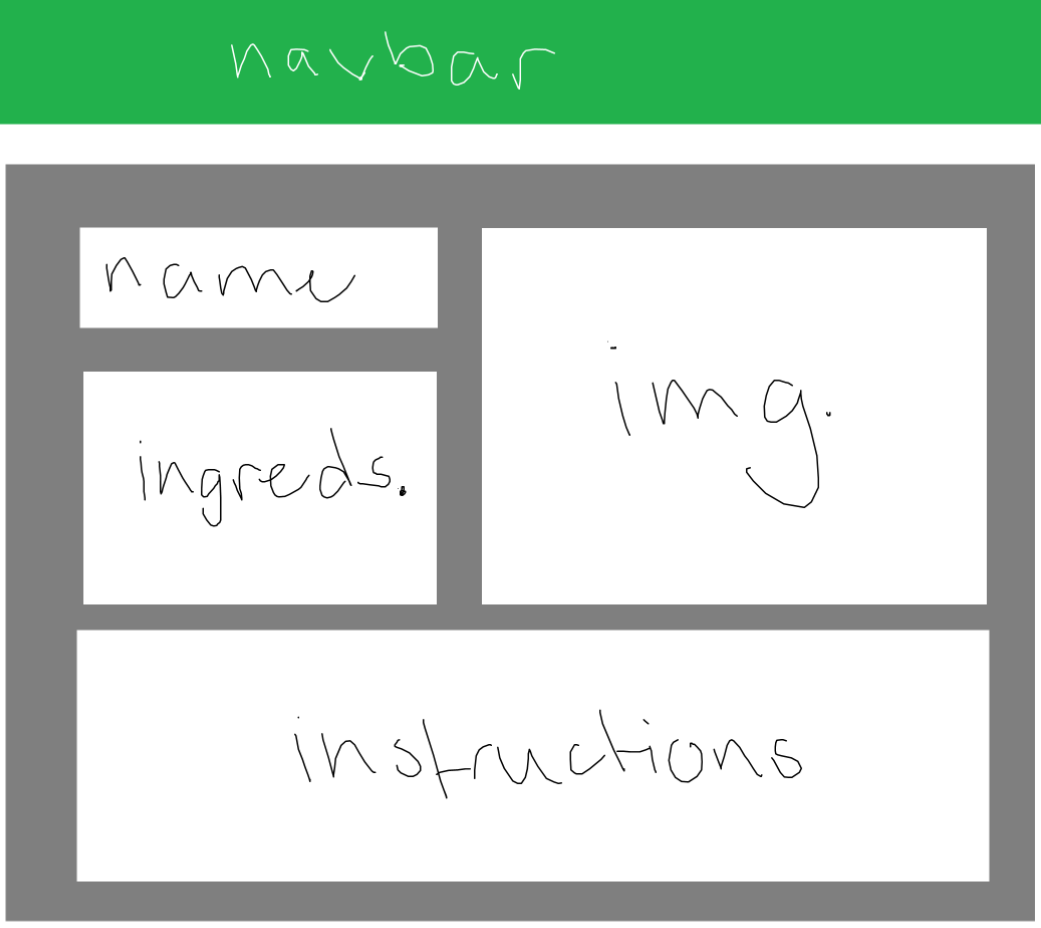 navbar
name
img.
ingreds.
instructions